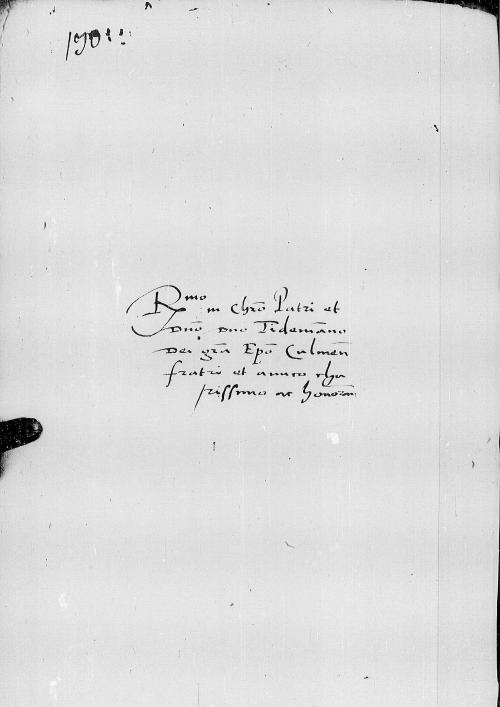 190
Rmo in Chro Patri et
Dno, Dno Tidemanno
Dei gra Epo Culmen
fratri et amico cha
rissimo ac honoran